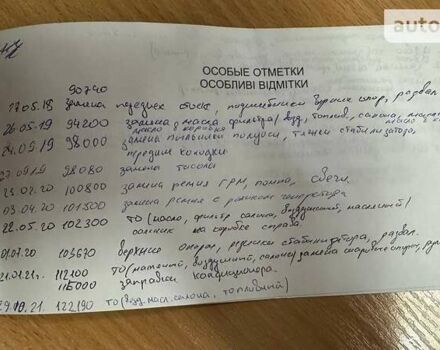 auto
ОСОБЫЕ ОТМЕТКИ
ОСОБЛИВІ ВІДМІТКИ
90740
27.05.18 замена передних стоек, подшипники опор, развал
26.05.19 94200 замена масла фильтра/возд, топлив, салона, масло
масло в коробке
24.09.19 98000 замена пыльника полуоси, тяжки стабилизатора
передние колодки
27.09.19 98080 замена тосола
100800 замена ремня ГРМ, помпа, свечи
03.04.20 101500 замена ремня с роликом генератора
22.05.20 102300 ТО (масло, фильтр салона, воздушный, масленый)
сальник на коробке справа.
01.07.20 103670 верхние опоры, втулки стабилизатора, развал.
21.01.21г. 112100 ТО (масленый, воздушный, салон) замена
115000 заправка кондиционера.
29.10.21. 122190 ТО (возд. масл. салона, топливный)